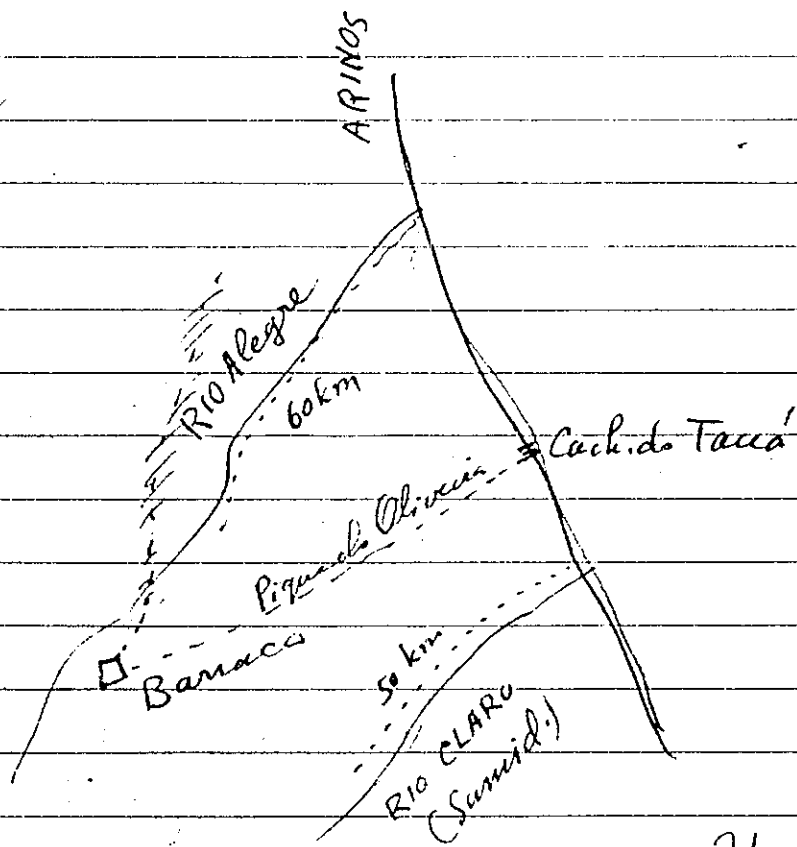 ARINOS
RIO Alegre
60 km
Cach. do Tacuá
Pique do Oliveira
Barraca
50 km
RIO CLARO
(Sumid.)